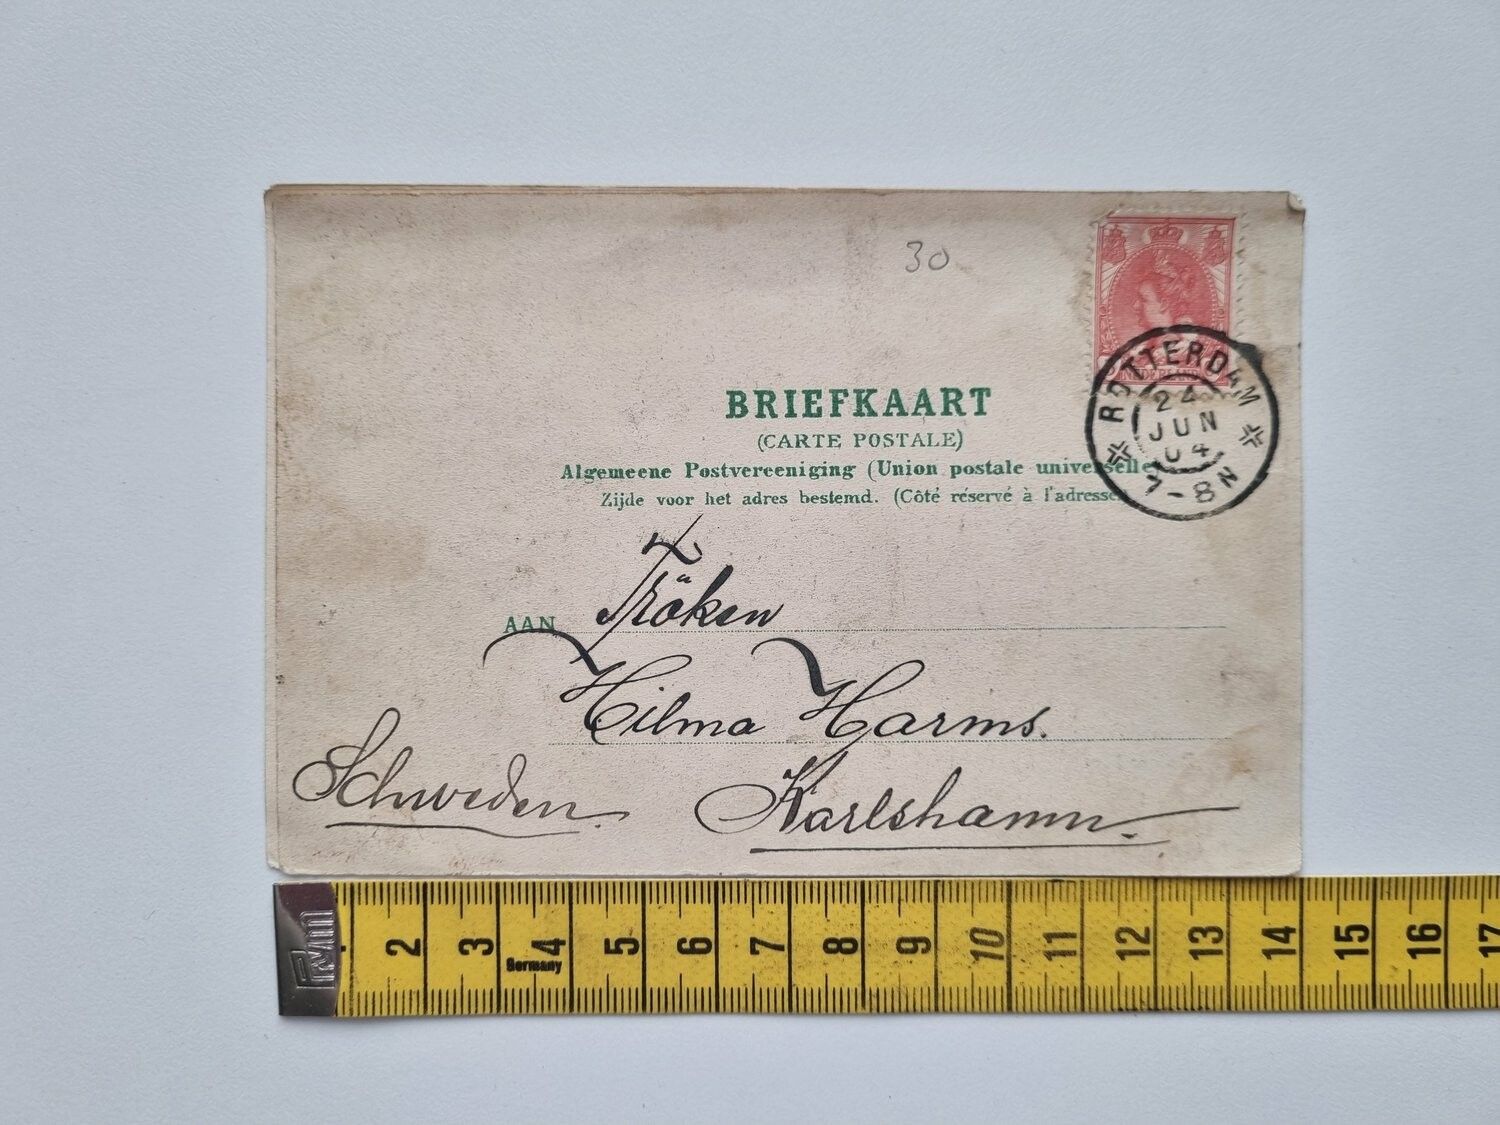 30
NEDERLAND
ROTTERDAM
24
JUN
04
7-8N
BRIEFKAART
(CARTE POSTALE)
Algemeene Postvereeniging (Union postale universelle
Zijde voor het adres bestemd. (Côté réservé à l'adresse
AAN Fröken
Hilma Harms.
Schweden. Karlshamn.
Prym 2 3 4 5 6 7 8 9 10 11 12 13 14 15 16 17
Germany